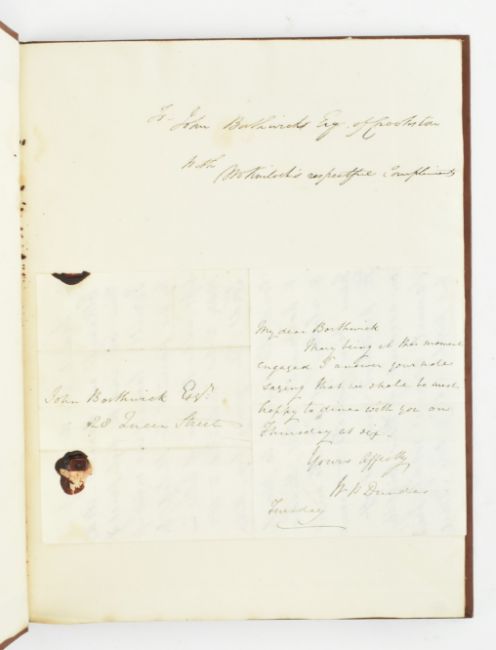 To John Borthwick Esq. of Crookston
With
Mr Kinloch's respectful Compliments
John Borthwick Esqr.
Queen Street
My dear Borthwick
Mary being at this moment
engaged I answer your note
saying that we shall be most
happy to dine with you on
Thursday at six.
Yours affectly
Dundas
Tuesday